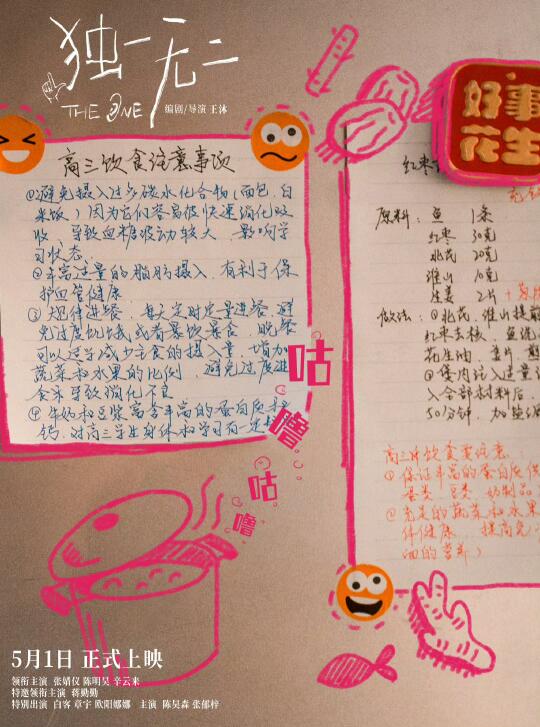 独一无二
THE ONE
编剧/导演 王沐
高三饮食注意事项
①避免摄入过多碳水化合物(面包、白
米饭)因为它们容易被快速消化吸
收、导致血糖波动较大、影响学
习状态.
②丰富适量的脂肪摄入、有利于保
护血管健康
③规律进餐、每天定时定量进餐、避
免过度饥饿或者暴饮暴食、晚餐
可以适当减少主食的摄入量、增加
蔬菜和水果的比例、避免过度进
食导致消化不良
④牛奶和豆浆富含丰富的蛋白质和
钙、对高三学生身体和学习有一定
咕
噜
咕
噜
好事
花生
红枣
原料: 鱼 1条
红枣 30克
北芪 20克
淮山 10克
生姜 2片
做法:①北芪、淮山提前
红枣去核、鱼洗
花生油、姜片、煎
②煲内注入适量
入全部材料后、
50分钟、加盐
高三生饮食要注意:
①保证丰富的蛋白质供
蛋类、豆类、奶制品
②充足的蔬菜和水果
体健康、提高免
细的营养)
5月1日 正式上映
领衔主演 张婧仪 陈明昊 辛云来
特邀领衔主演 蒋勤勤
特别出演 白客 章宇 欧阳娜娜 主演 陈昊森 张郁梓